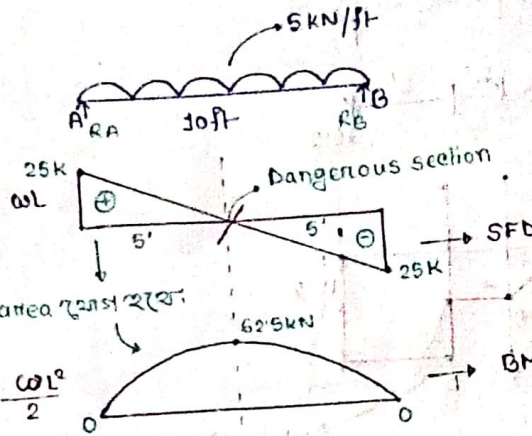 5 KN/ft
A RA 10ft RB B
25K
Dangerous section
ωL ⊕ 5' 5' ⊖ → SFD
25K
area যোগ হবে।
62.5kN
ωL²/2 → BM
0 0